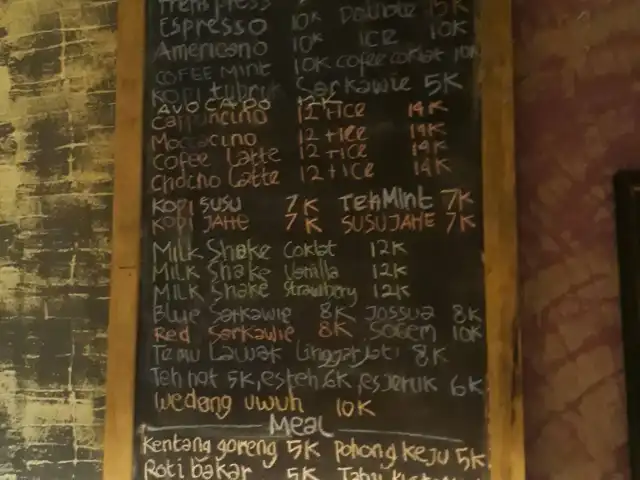 Frenspress
Espresso 10K Dolbole 15K
Americano 10K ICE 10K
COFEE MINT 10K cofee coklat 10K
KOPI tubruk Sarkawie 5K
AVOCADO
Cappuncino 12 + ICE 14K
Moccacino 12 + ICE 14K
Cofee Latte 12 + ICE 14K
Chocho Latte 12 + ICE 14K
KOPI SUSU 7K TEH MINT 7K
KOPI JAHE 7K SUSU JAHE 7K
MILK Shake Coklat 12K
MILK Shake Vanilla 12K
MILK Shake Strawbery 12K
Blue Sarkawie 8K Jossua 8K
Red Sarkawie 8K Sogem 10K
Temu Lawak Linggarjati 8K
Teh hot 5K, es teh 6K, es jeruk 6K
Wedang uwuh 10K
MEAL
Kentang goreng 5K Pohong Keju 5K
Roti bakar 5K Tahu